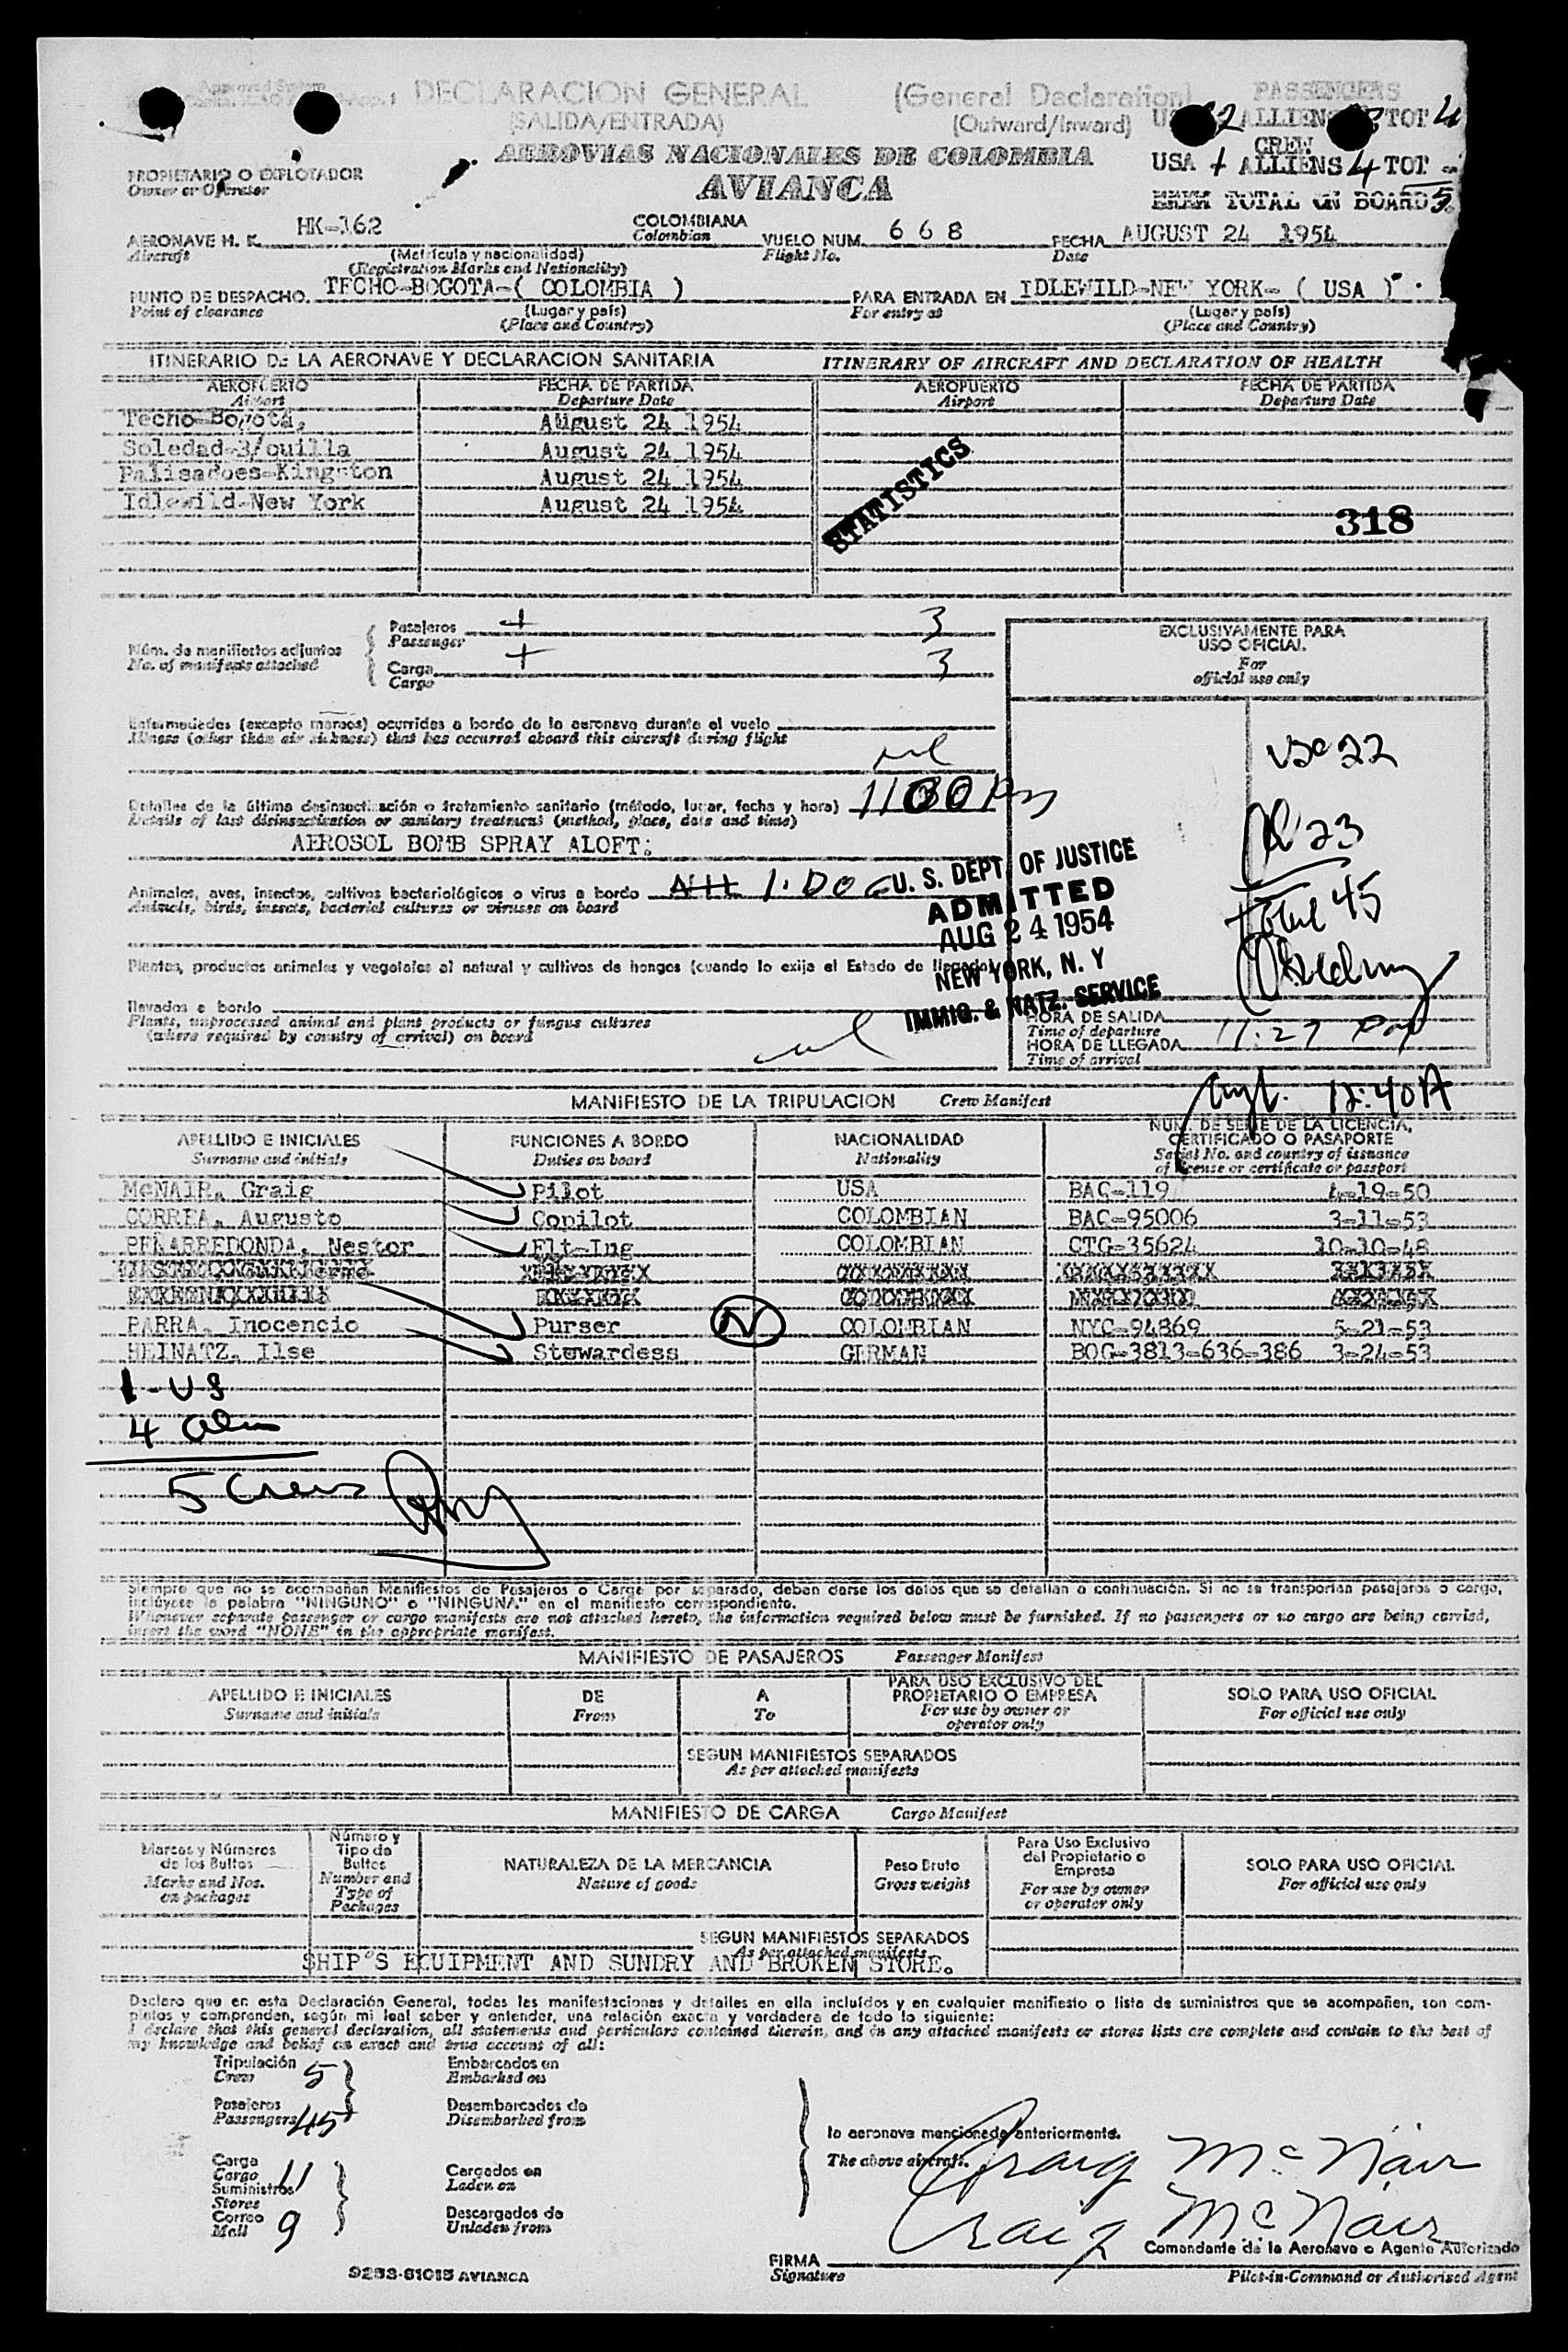 DECLARACION GENERAL (General Declaration) PASSENGERS
(SALIDA/ENTRADA) (Outward/Inward) ALLIENS TOT 4
CREW
AEROVIAS NACIONALES DE COLOMBIA USA + ALLIENS 4 TOT
PROPIETARIO O EXPLOTADOR
Owner or Operator
AVIANCA TOTAL ON BOARD 5
AERONAVE H. K. HK-162 COLOMBIANA VUELO NUM. 6 6 8 FECHA AUGUST 24 1954
Aircraft Colombian Flight No. Date
(Matrícula y nacionalidad)
(Registration Marks and Nationality)
PUNTO DE DESPACHO. TECHO-BOGOTA-( COLOMBIA ) PARA ENTRADA EN IDLEWILD-NEW YORK- ( USA )
Point of clearance (Lugar y país) For entry at (Lugar y país)
(Place and Country) (Place and Country)
ITINERARIO DE LA AERONAVE Y DECLARACION SANITARIA ITINERARY OF AIRCRAFT AND DECLARATION OF HEALTH
AEROPUERTO FECHA DE PARTIDA AEROPUERTO FECHA DE PARTIDA
Airport Departure Date Airport Departure Date
Techo-Bogota, August 24 1954
Soledad-B/quilla August 24 1954
Palisadoes-Kingston August 24 1954
Idlewild-New York August 24 1954
STATISTICS
318
Núm. de manifiestos adjuntos
No. of manifests attached
Pasajeros + 3
Passenger
Carga + 3
Cargo
EXCLUSIVAMENTE PARA
USO OFICIAL
For
official use only
Enfermedades (excepto mareos) ocurridas a bordo de la aeronave durante el vuelo
Illness (other than air sickness) that has occurred aboard this aircraft during flight
nil
22
Detalles de la última desinsectización o tratamiento sanitario (método, lugar, fecha y hora) 1100 Pm
Details of last disinsectization or sanitary treatment (method, place, date and time)
AEROSOL BOMB SPRAY ALOFT:
23
Animales, aves, insectos, cultivos bacteriológicos o virus a bordo NIL 1. DOG
Animals, birds, insects, bacterial cultures or viruses on board
Total 45
U. S. DEPT. OF JUSTICE
ADMITTED
AUG 24 1954
NEW YORK, N. Y
IMMIG. & NATZ. SERVICE
Plantas, productos animales y vegetales al natural y cultivos de hongos (cuando lo exija el Estado de llegada)
llevados a bordo
Plants, unprocessed animal and plant products or fungus cultures
(where required by country of arrival) on board
nil
HORA DE SALIDA
Time of departure
HORA DE LLEGADA 11:27 Pm
Time of arrival
12:40A
MANIFIESTO DE LA TRIPULACION Crew Manifest
APELLIDO E INICIALES FUNCIONES A BORDO NACIONALIDAD NUM. DE SERIE DE LA LICENCIA, CERTIFICADO O PASAPORTE
Surname and initials Duties on board Nationality Serial No. and country of issuance of license or certificate or passport
McNAIR, Graig Pilot USA BAC-119 4-19-50
CORREA, Augusto Copilot COLOMBIAN BAC-95006 3-11-53
PEÑARREDONDA, Nestor Flt-Ing COLOMBIAN CTG-35624 10-10-48
PARRA, Inocencio Purser COLOMBIAN NYC-94869 5-21-53
HEINATZ, Ilse Stewardess GERMAN BOG-3813-636-386 3-24-53
1-US
4 alien
5 Crew
Siempre que no se acompañan Manifiestos de Pasajeros o Carga por separado, deben darse los datos que se detallan a continuación. Si no se transportan pasajeros o carga,
inclúyase la palabra "NINGUNO" o "NINGUNA" en el manifiesto correspondiente.
Whenever separate passenger or cargo manifests are not attached hereto, the information required below must be furnished. If no passengers or no cargo are being carried,
insert the word "NONE" in the appropriate manifest.
MANIFIESTO DE PASAJEROS Passenger Manifest
APELLIDO E INICIALES DE A PARA USO EXCLUSIVO DEL PROPIETARIO O EMPRESA SOLO PARA USO OFICIAL
Surname and initials From To For use by owner or operator only For official use only
SEGUN MANIFIESTOS SEPARADOS
As per attached manifests
MANIFIESTO DE CARGA Cargo Manifest
Marcas y Números de los Bultos Número y Tipo de Bultos NATURALEZA DE LA MERCANCIA Peso Bruto Para Uso Exclusivo del Propietario o Empresa SOLO PARA USO OFICIAL
Marks and Nos. on packages Number and Type of Packages Nature of goods Gross weight For use by owner or operator only For official use only
SEGUN MANIFIESTOS SEPARADOS
As per attached manifests
SHIP'S EQUIPMENT AND SUNDRY AND BROKEN STORE.
Declaro que en esta Declaración General, todas las manifestaciones y detalles en ella incluídos y en cualquier manifiesto o lista de suministros que se acompañen, son com-
pletos y comprenden, según mi leal saber y entender, una relación exacta y verdadera de todo lo siguiente:
I declare that this general declaration, all statements and particulars contained therein, and in any attached manifests or stores lists are complete and contain to the best of
my knowledge and belief an exact and true account of all:
Tripulación 5 Embarcados en
Crew Embarked on
Pasajeros 45 Desembarcados de
Passengers Disembarked from
la aeronave mencionada anteriormente.
The above aircraft.
Carga 11 Cargados en
Cargo Laden on
Suministros
Stores
Correo 9 Descargados de
Mail Unladen from
Craig McNair
Craig McNair
Comandante de la Aeronave o Agente Autorizado
FIRMA
Signature Pilot-in-Command or Authorised Agent
9233-61015 AVIANCA